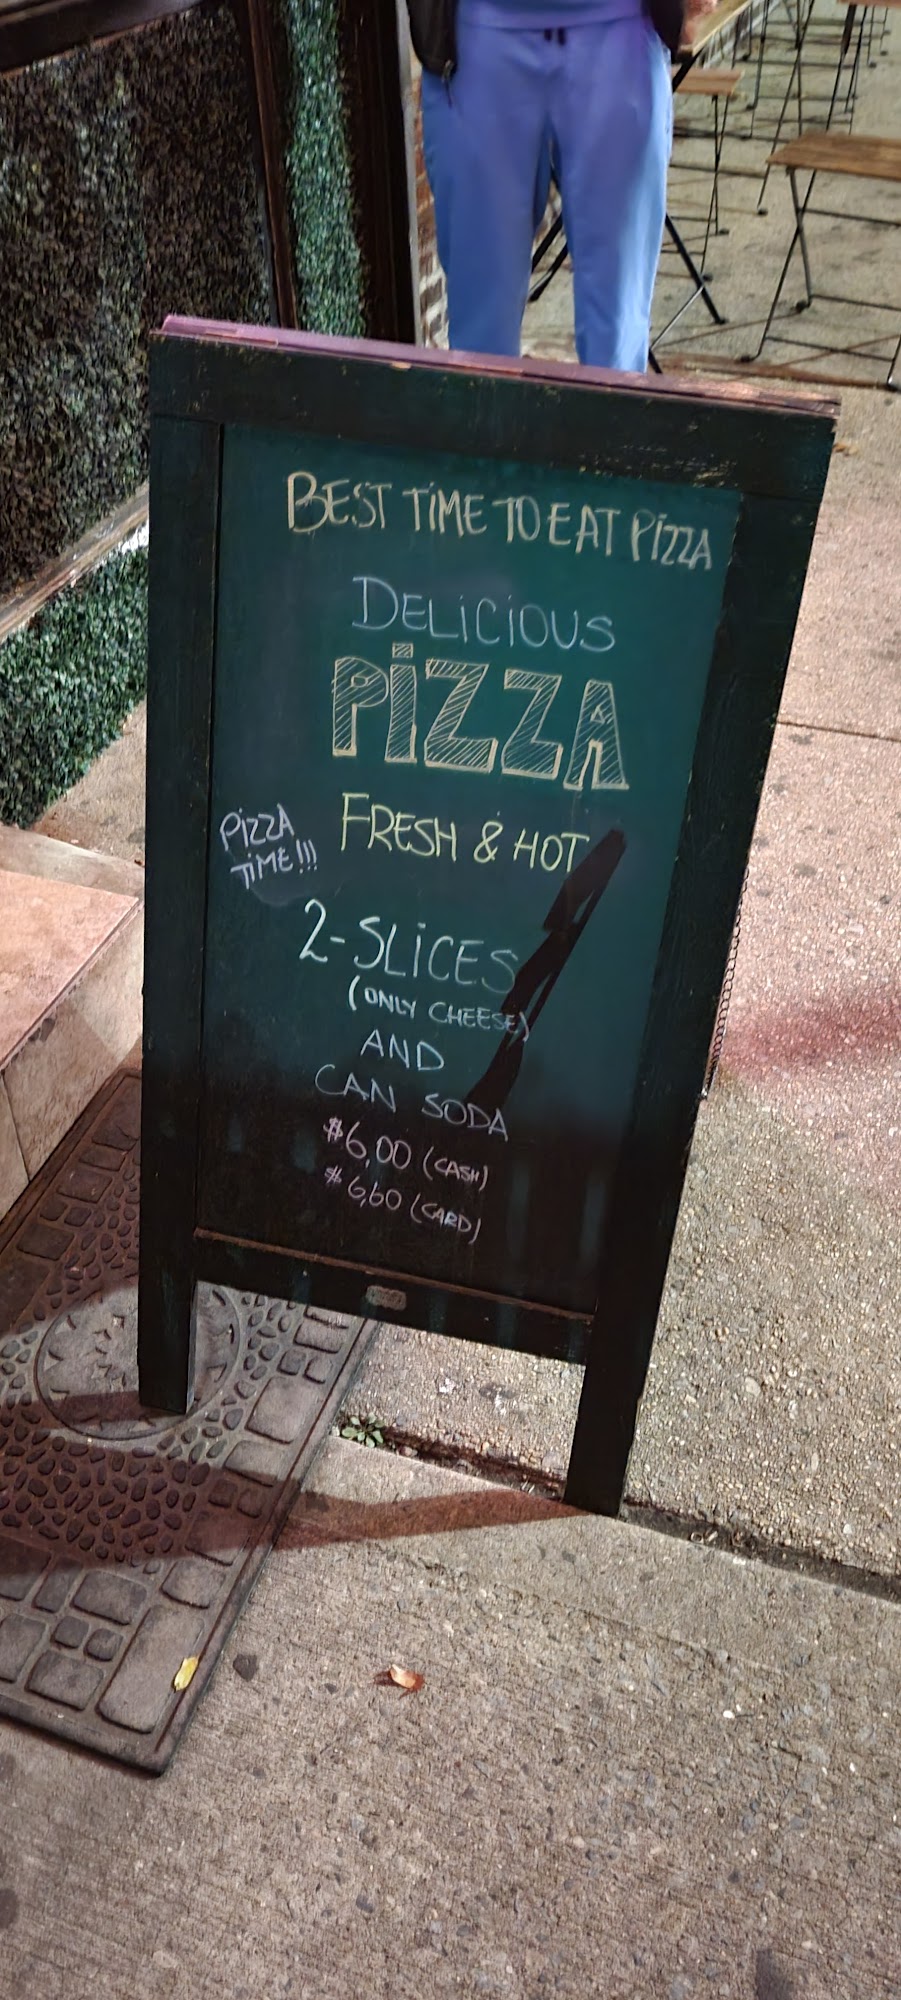 BEST TIME TO EAT PIZZA
DELICIOUS
PIZZA
FRESH & HOT
PIZZA
TIME!!!
2-SLICES
(ONLY CHEESE)
AND
CAN SODA
$6,00 (CASH)
$6,60 (CARD)